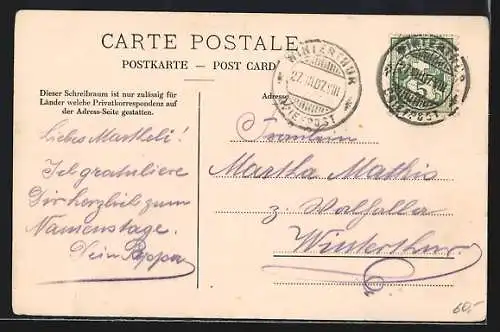 CARTE POSTALE
POSTKARTE — POST CARD
Dieser Schreibraum ist nur zulässig für
Länder welche Privatkorrespondenz auf
der Adress-Seite gestatten.
Adresse
WINTERTHUR
27.III.07.VIII
BRIEFPOST
WINTERTHUR
BRIEFPOST
5
Liebes Martheli!
Ich gratuliere
Dir herzlich zum
Namenstage.
Dein Pappa
Fräulein
Martha Mathis
z. Walhalla
Winterthur.
60.-